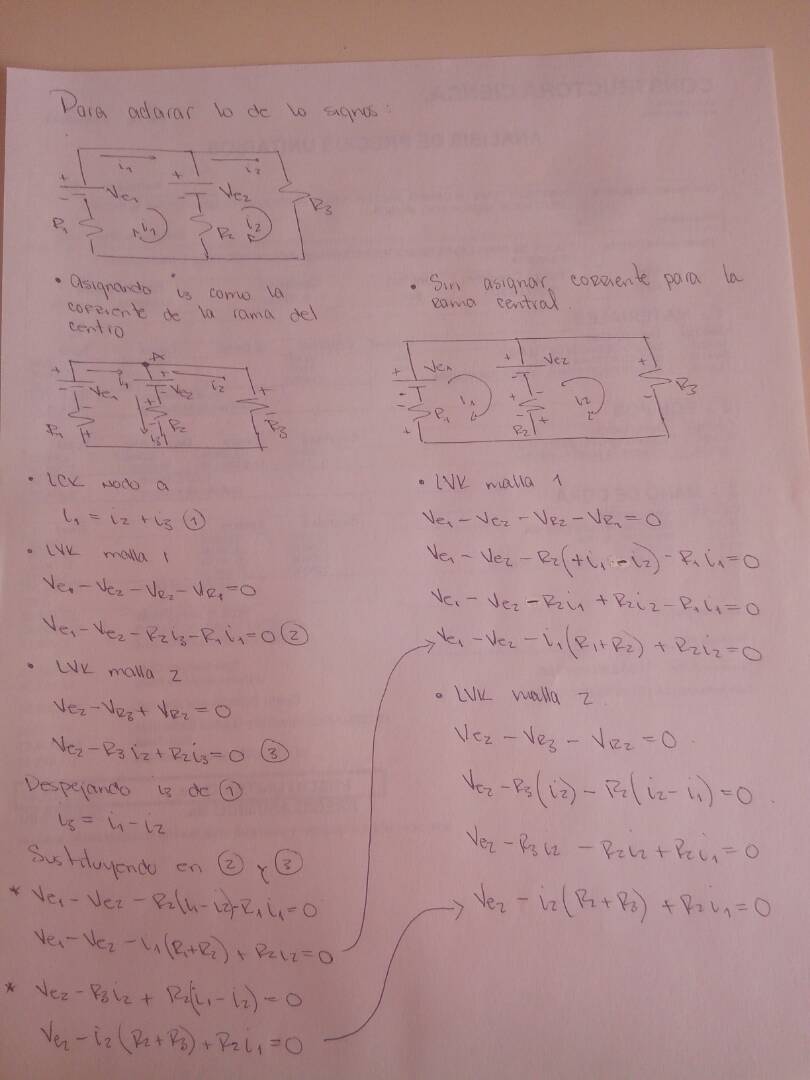 Para aclarar lo de lo signos:
i1 i2
+ - Ve1 + - Ve2
R1 i1 R2 i2 R3
• Asignando i3 como la
corriente de la rama del
centro
A
+ - Ve1 i1 + - Ve2 i2 +
R1 - + i3 R2 - R3
• LCK nodo a
i1 = i2 + i3 ①
• LVK malla 1
Ve1 - Ve2 - VR2 - VR1 = 0
Ve1 - Ve2 - R2i3 - R1i1 = 0 ②
• LVK malla 2
Ve2 - VR3 + VR2 = 0
Ve2 - R3i2 + R2i3 = 0 ③
Despejando i3 de ①
i3 = i1 - i2
Sustituyendo en ② y ③
* Ve1 - Ve2 - R2(i1 - i2) - R1i1 = 0
Ve1 - Ve2 - i1(R1+R2) + R2i2 = 0
* Ve2 - R3i2 + R2(i1 - i2) = 0
Ve2 - i2(R2+R3) + R2i1 = 0
• Sin asignar corriente para la
rama central.
+ - Ve1 + - Ve2 +
- R1 + i1 + - R2 - + i2 R3 -
• LVK malla 1
Ve1 - Ve2 - VR2 - VR1 = 0
Ve1 - Ve2 - R2(+i1 - i2) - R1i1 = 0
Ve1 - Ve2 - R2i1 + R2i2 - R1i1 = 0
Ve1 - Ve2 - i1(R1+R2) + R2i2 = 0
• LVK malla 2
Ve2 - VR3 - VR2 = 0
Ve2 - R3(i2) - R2(i2 - i1) = 0
Ve2 - R3i2 - R2i2 + R2i1 = 0
Ve2 - i2(R2+R3) + R2i1 = 0
CONSTRUCTORA CIENCA,
ANALISIS DE PRECIOS UNITARIOS